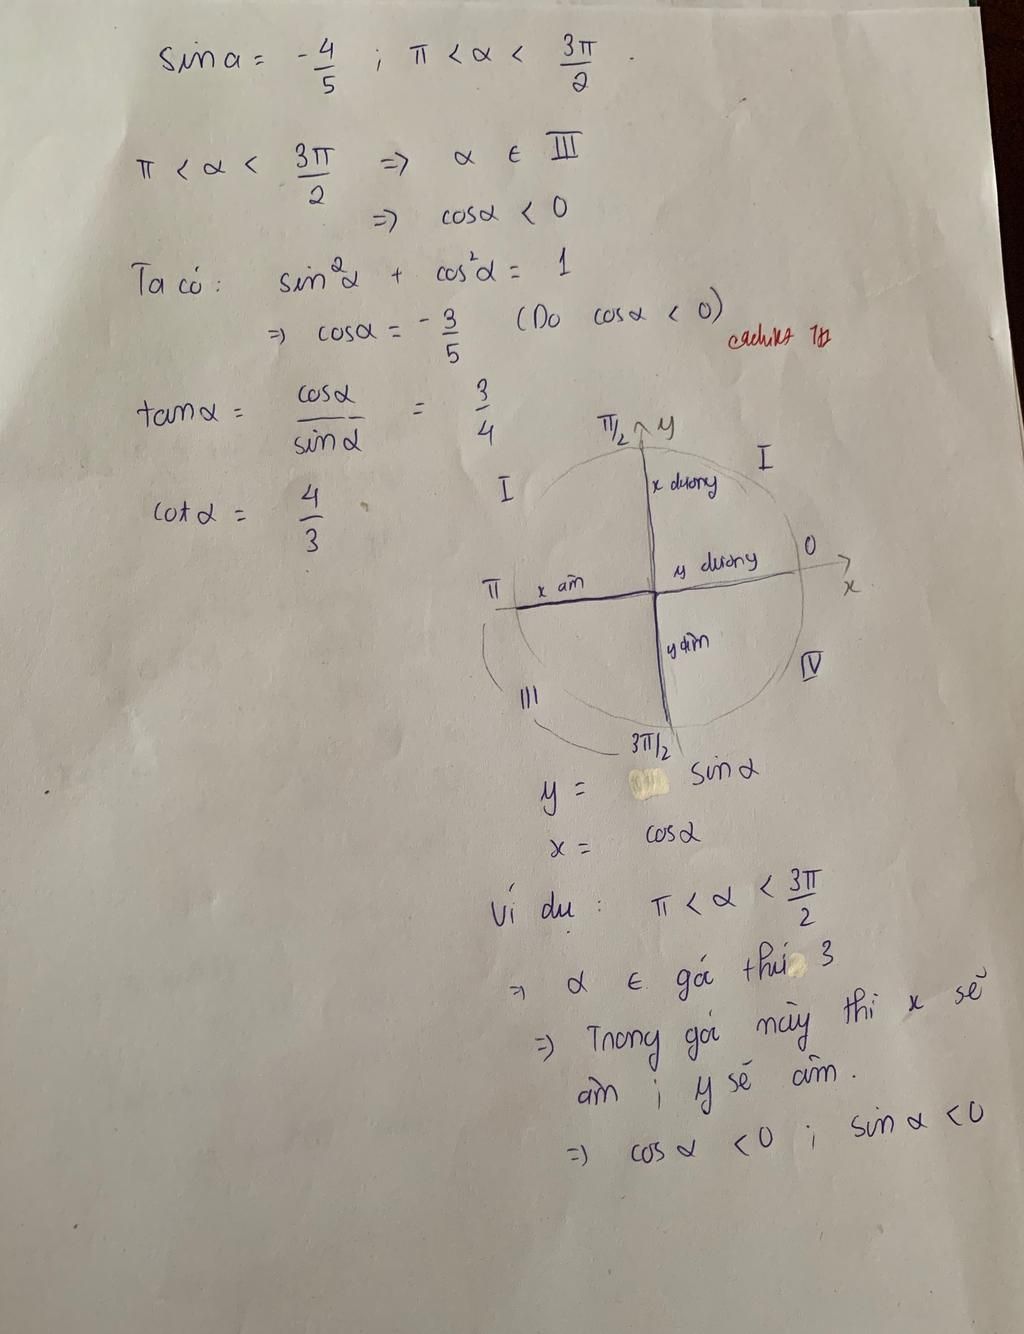 sin α = -4/5 ; π < α < 3π/2 .
π < α < 3π/2 => α ∈ III
=> cosα < 0
Ta có: sin²α + cos²α = 1
=> cosα = -3/5 (Do cosα < 0)
tanα = cosα/sinα = 3/4
cotα = 4/3
π/2 y
I
I
x dương
0
y dương
x
π
x âm
y âm
IV
III
3π/2
y = sinα
x = cosα
Ví dụ : π < α < 3π/2
=> α ∈ gó thứ 3
=> Trong gói này thì x sẽ
âm ; y sẽ âm .
=> cos α < 0 ; sin α < 0